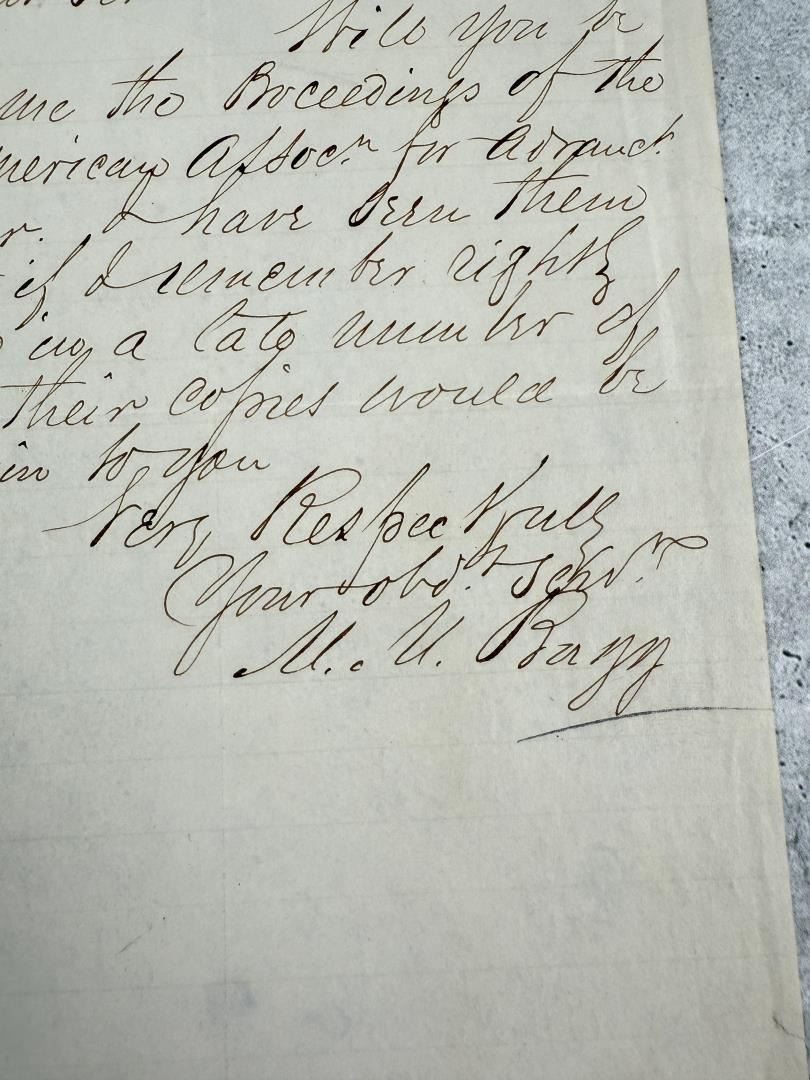 Will you be
me the Proceedings of the
merican Assoc.n for Advanct.
r. I have seen them
if I remember rightly
in a late number of
their copies would be
in to you
Very Respectfully
Your obd.t Serv.t
M. M. Bagg